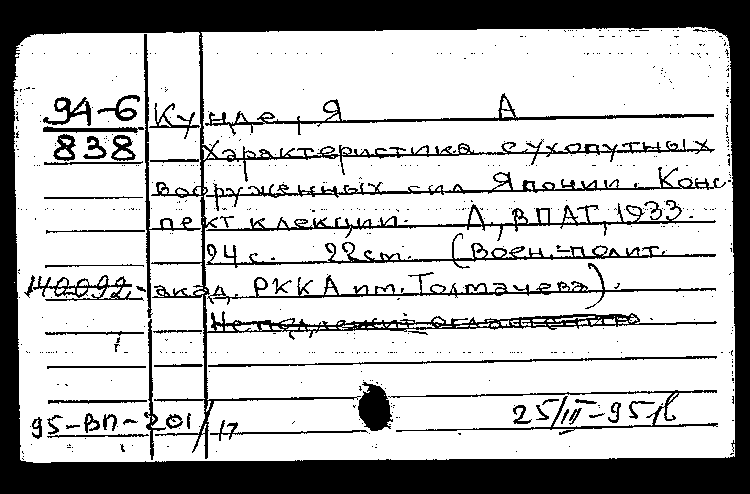 94-6 Кунде, Я А
838 Характеристика сухопутных
вооруженных сил Японии. Конс
пект к лекции. Л, ВПАТ, 1933.
24 с. 22 cm. (Воен.-полит.
140092,- акад. РККА им. Толмачева).
Не подлежит оглашению
1
95-ВП-201/17 25/III-95 ів